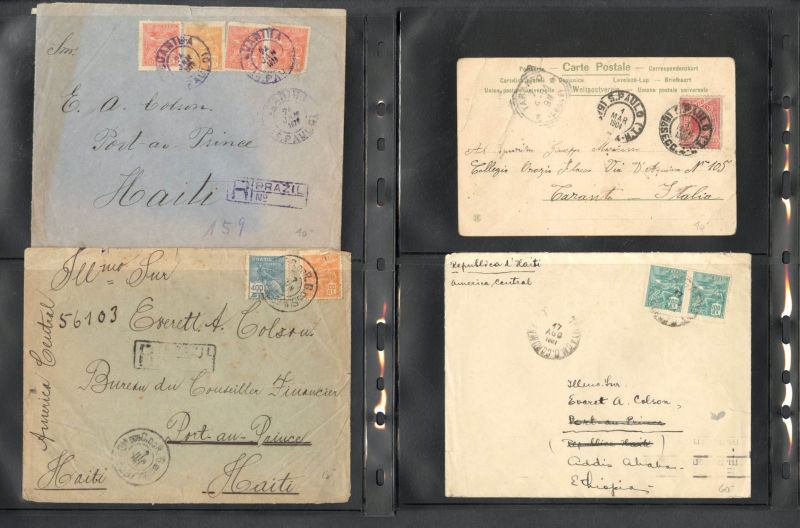 Snr.
E. A. Colson
Port-au-Prince
Haiti
R BRAZIL
Nº
159
Illmo Snr
America Central
56103
Everett A. Colson
Bureau du Conseiller Financier
Port-au-Prince
Haiti
Haiti
BRASIL
400
Carte Postale
Correspondenzkarte
Levelező-Lap
Briefkaart
Weltpostverein
Union postale universelle
Unione postale universale
S. PAULO
1
MAR
1904
Collegio Orazio Flacco Via D'Aquino Nº 105
Taranto - Italia
Republica d'Haiti
America Central
17
AUG
Illmo. Snr.
Everet A. Colson,
Port-au-Prince
(Republica Haiti)
Addis Ababa
Ethiopia
60-